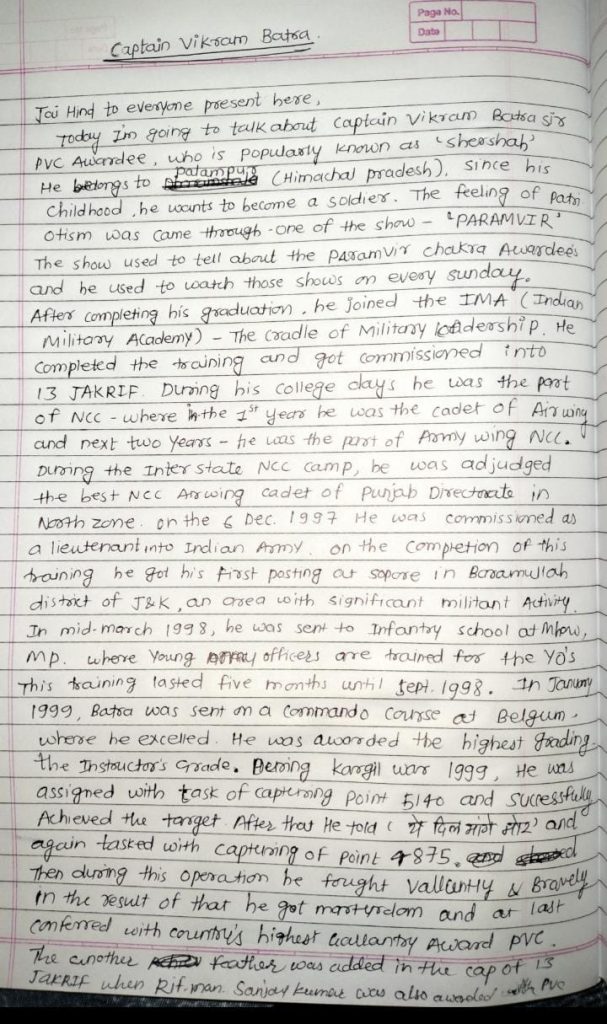 Page No.
Date
Captain Vikram Batra.
Jai Hind to everyone present here,
Today Im going to talk about Captain Vikram Batra sir
PVC Awardee, who is popularly known as 'shershah'
Palampur
He belongs to (Himachal pradesh), since his
childhood, he wants to become a soldier. The feeling of patri
otism was came through - one of the show - 'PARAMVIR'
The show used to tell about the Paramvir chakra Awardees
and he used to watch those shows on every sunday.
After completing his graduation, he joined the IMA (Indian
Military Academy) - The Cradle of Military leadership. He
completed the training and got commissioned into
13 JAKRIF. During his college days he was the part
of NCC - where in the 1st year he was the cadet of Air wing
and next two years - he was the part of Army wing NCC.
During the Inter state NCC camp, he was adjudged
the best NCC Airwing cadet of Punjab Directorate in
North zone. on the 6 Dec. 1997 He was commissioned as
a lieutenant into Indian Army. on the completion of this
training he got his first posting at sopore in Baramullah
district of J&K, an area with significant militant Activity.
In mid-march 1998, he was sent to Infantry school at Mhow,
MP. where Young officers are trained for the YO's
This training lasted five months until sept. 1998. In January
1999, Batra was sent on a Commando Course at Belgum.
where he excelled. He was awarded the highest grading
the Instructor's Grade. During kargil war 1999, He was
assigned with task of capturing Point 5140 and successfully
Achieved the target. After that He told ( ये दिल मांगे मोर' and
again tasked with capturing of Point 4875.
Then during this operation he fought vallantly & Bravely
in the result of that he got martyrdom and at last
conferred with country's highest Gallantry Award PVC.
The another feather was added in the cap of 13
JAKRIF when Rif.man. Sanjay kumar was also awarded with PVC